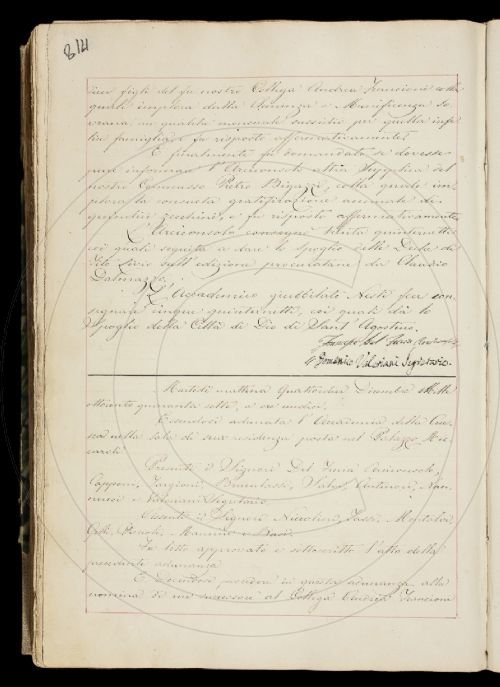 814
figli del fu nostro Collega Andrea Francioni colla
quale implora dalla Clemenza e Munificenza So
vrana in qualità mensuale sussidio per quella infe
lice famiglia, e fu risposto affermativamente
E finalmente fu domandato se dovesse
informare l'Arciconsolo altra Supplica del
nostro Commesso Pietro Bigazzi, colla quale im
plora la consueta gratificazione annuale di
quindici zecchini, e fu risposto affermativamente
L'Arciconsolo consegna venti quinternetti
coi quali seguita a dare lo spoglio della Deca di
Tito Livio sull'edizione procuratane da Claudio
Dalmazzo.
L'Accademico giubbilato Nesti fece con
segnare cinque quinternetti, coi quali dà lo
Spoglio della Città di Dio di Sant'Agostino.
Francesco Del Furia
Domenico Valeriani Segretario.
Martedì mattina quattordici Dicembre Mille
ottocento quaranta sette, a ore undici.
Essendosi adunata l'Accademia della Cru
sca nella sala di sua residenza posta nel Palazzo Ric
cardi
Presenti i Signori Del Furia Arciconsolo,
Capponi, Targioni, Becchi, Antinori, Nan
nucci e Valeriani Segretario.
Assenti i Signori Niccolini, Tassi, Montalvi,
Mannini e Basi.
Fu letto approvato e sottoscritto l'atto della
precedente adunanza
E dovendosi procedere in questa adunanza alla
nomina di un successore al Collega Andrea Francioni